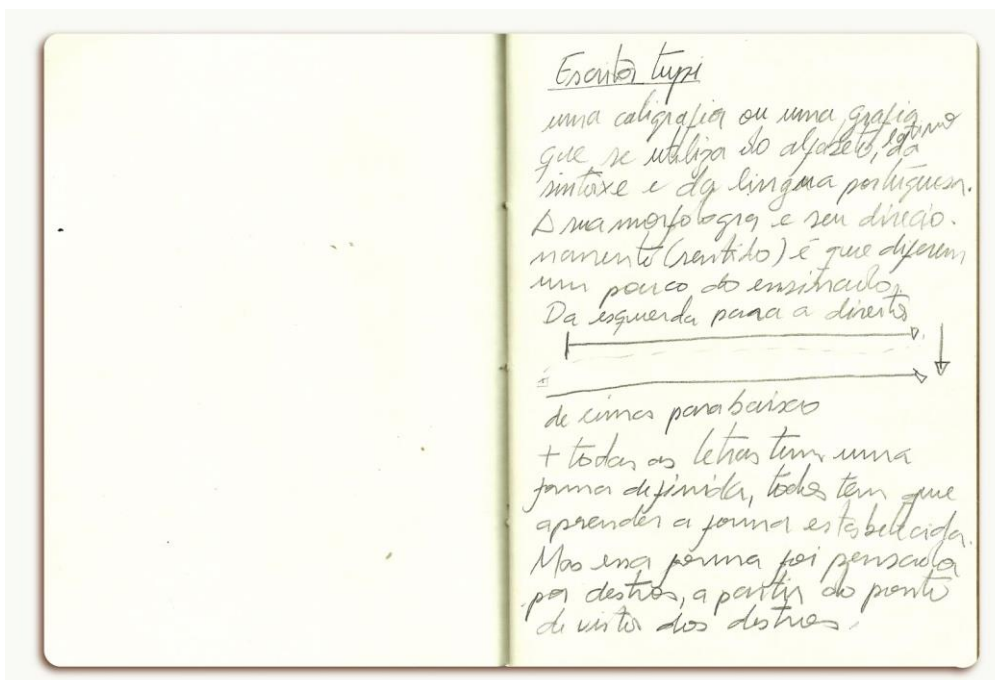 Escrita tupi
uma caligrafia ou uma grafia
que se utiliza do alfabeto latino, da
sintaxe e da língua portuguesa.
A sua morfologia e seu direcio-
namento (sentido) é que diferem
um pouco do ensinado.
Da esquerda para a direita
de cima para baixo
+ todas as letras tem uma
forma definida, todos tem que
aprender a forma estabelecida.
Mas essa forma foi pensada
por destros, a partir do ponto
de vista dos destros.